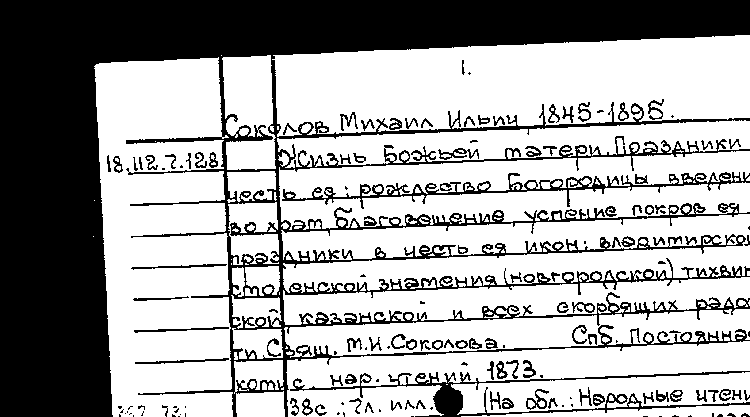 1.
Соколов, Михаил Ильич, 1845-1895.
18.112.7.128 Жизнь Божьей матери. Праздники
честь ея: рождество Богородицы, введени
во храм, благовещение, успение, покров ея
праздники в честь ея икон: владимирской
смоленской, знамения (новгородской), тихвин
ской, казанской и всех скорбящих радос
ти. Свящ. М.И.Соколова. Спб, Постоянная
комис. нар. чтений, 1873.
38с.; 2л. илл. (На обл.: Народные чтени